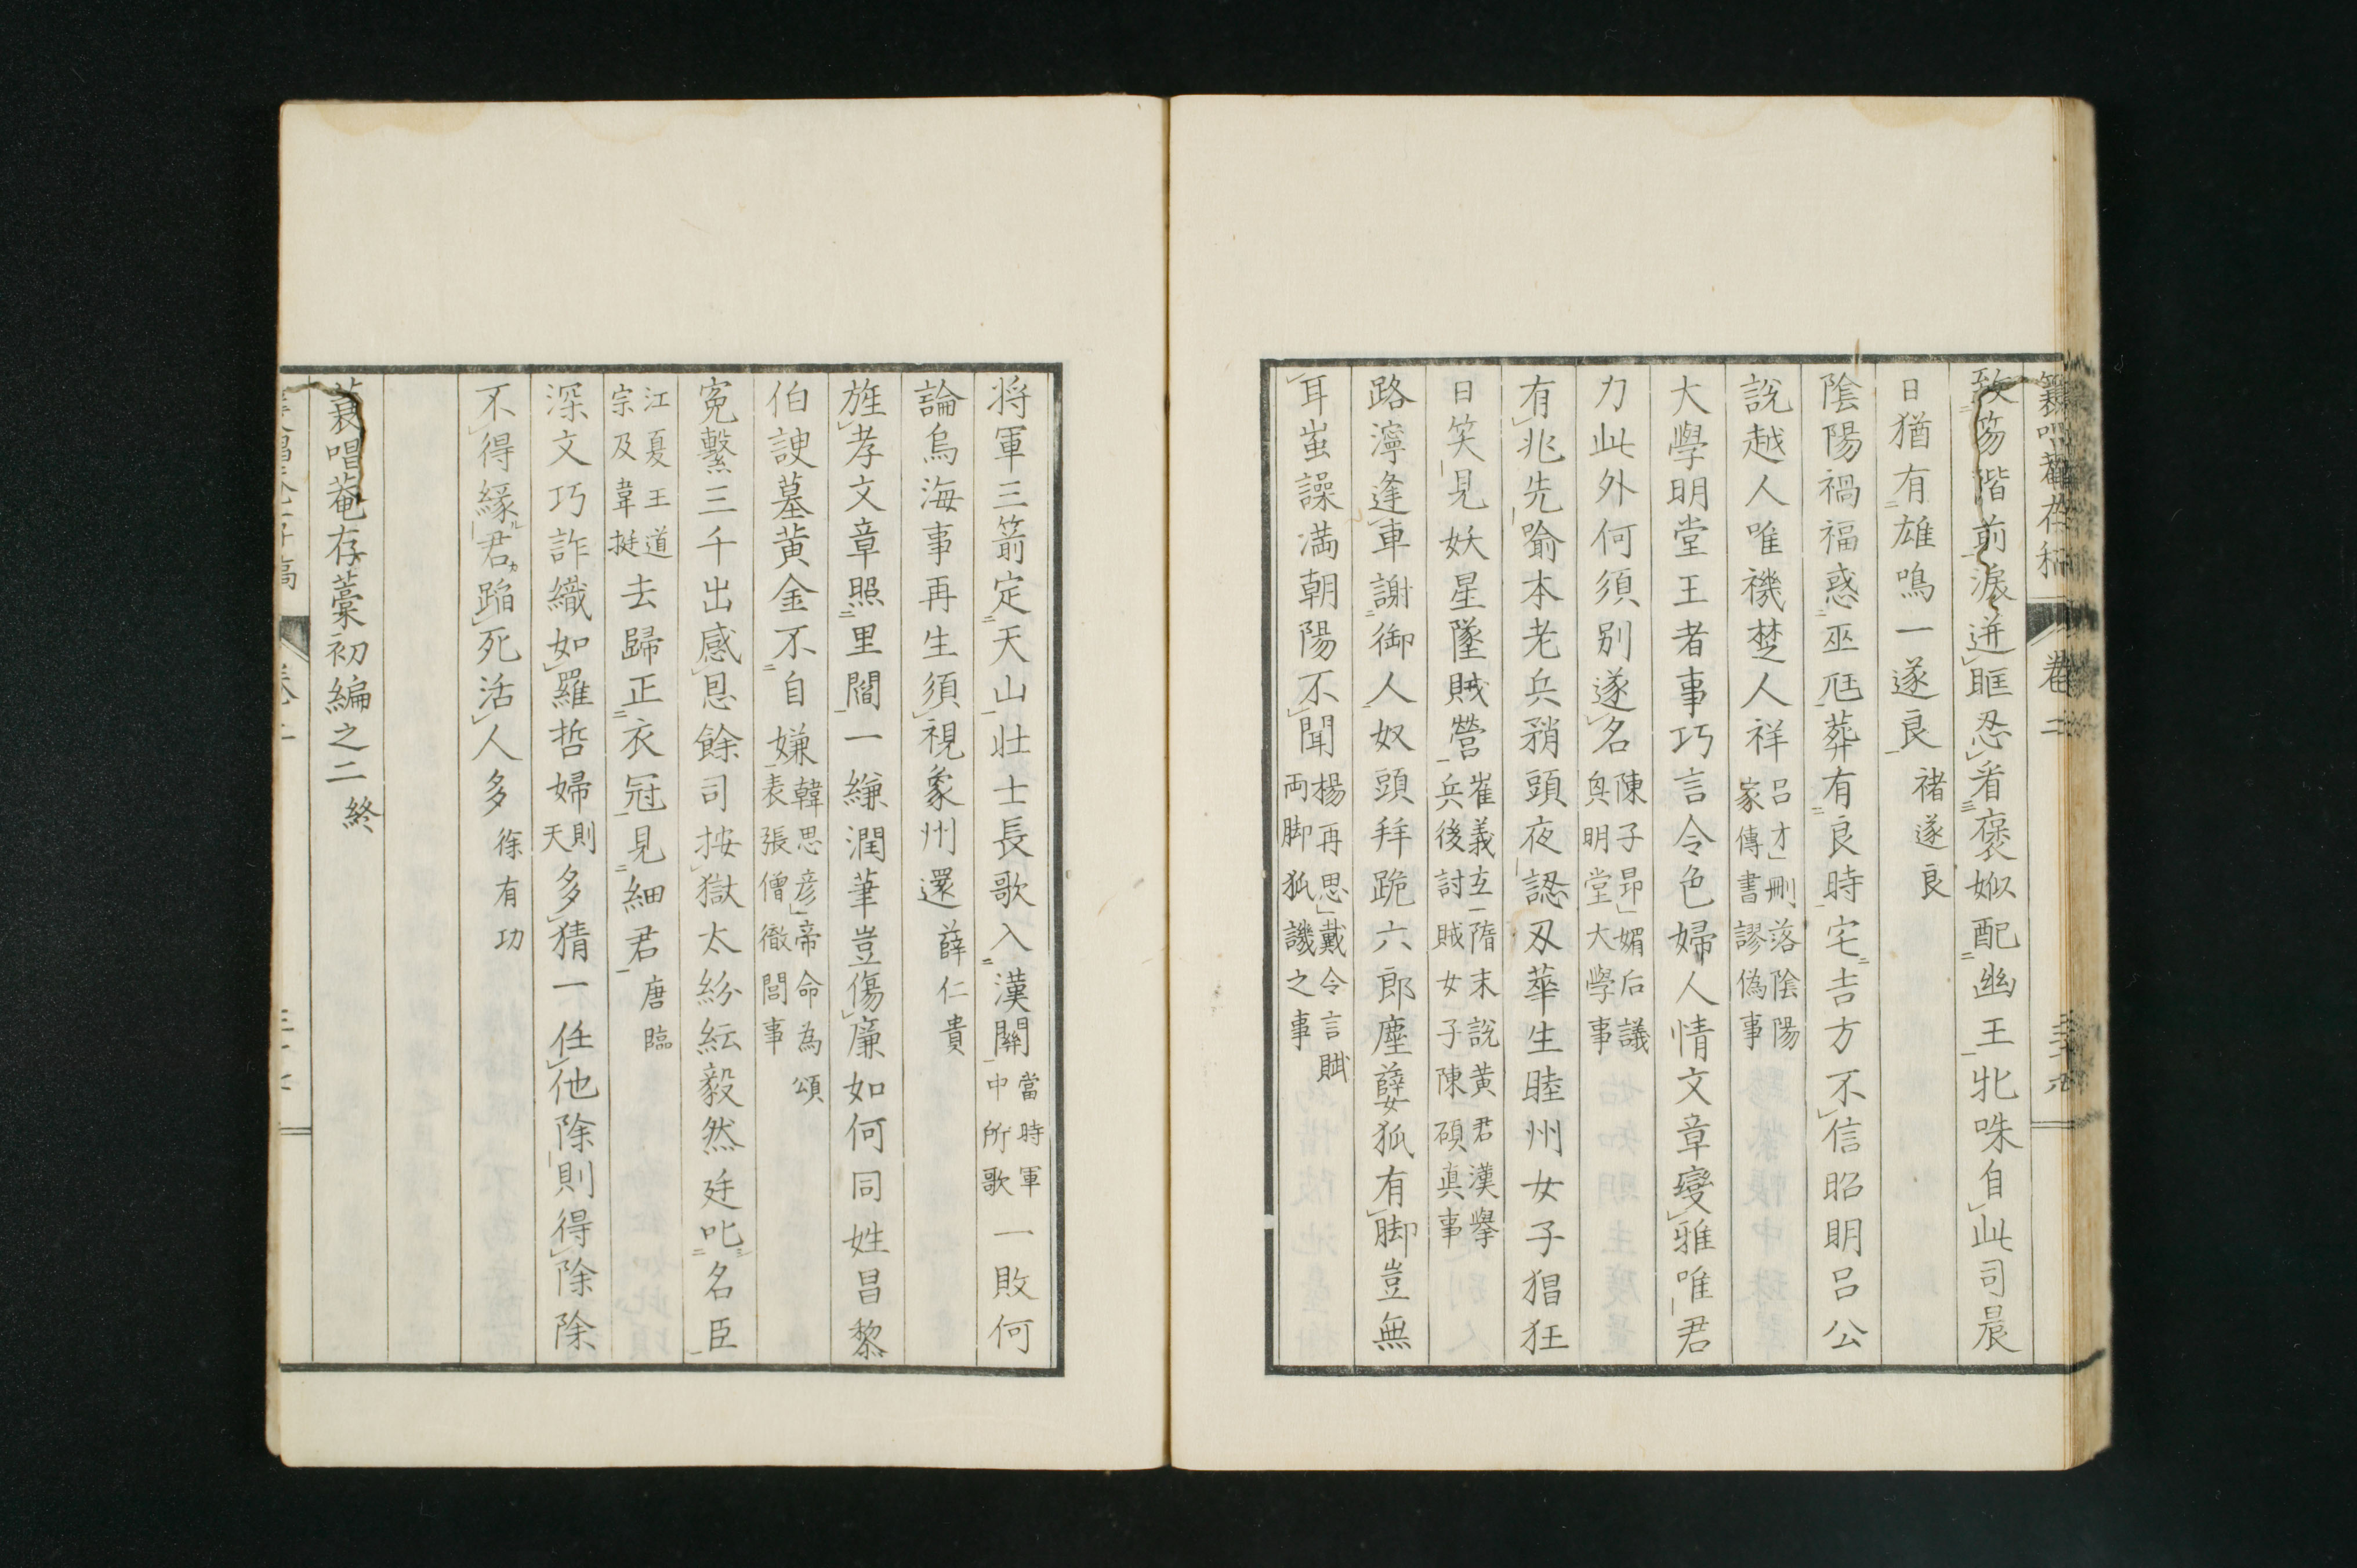 蓑唱菴存稿 卷二 三十九
致笏階前淚迸眶忍看褒姒配幽王牝咮自此司晨
日猶有雄鳴一遂良 褚遂良
陰陽禍福惑巫尫葬有良時宅吉方不信昭明呂公
說越人唯禨楚人祥 呂才刪落陰陽家傳書謬偽事
大學明堂王者事巧言令色婦人情文章變雅唯君
力此外何須別遂名 陳子昂媚后議與明堂大學事
有兆先喻本老兵矟頭夜認刃華生睦州女子猖狂
日笑見妖星墜賊營 崔義玄隋末說黃君漢擧兵後討賊女子陳碩真事
路濘逢車謝御人奴頭拜跪六郎塵孽狐有脚豈無
耳蚩譟滿朝陽不聞 楊再思戴令言賦両脚狐譏之事
将軍三箭定天山壮士長歌入漢關 當時軍中所歌 一敗何
論烏海事再生須視象州還 薛仁貴
旌孝文章照里閭一縑潤筆豈傷廉如何同姓昌黎
伯諛墓黄金不自嫌 韓思彦帝命為頌表張僧徹閭事
寃繫三千出感恩餘司按獄太紛紜毅然廷叱名臣
江夏王道宗及韋挺 去歸正衣冠見細君 唐臨
深文巧詐織如羅哲婦 則天 多猜一任他除則得除除
不得緣君蹈死活人多 徐有功
蓑唱菴存藁初編之二 終